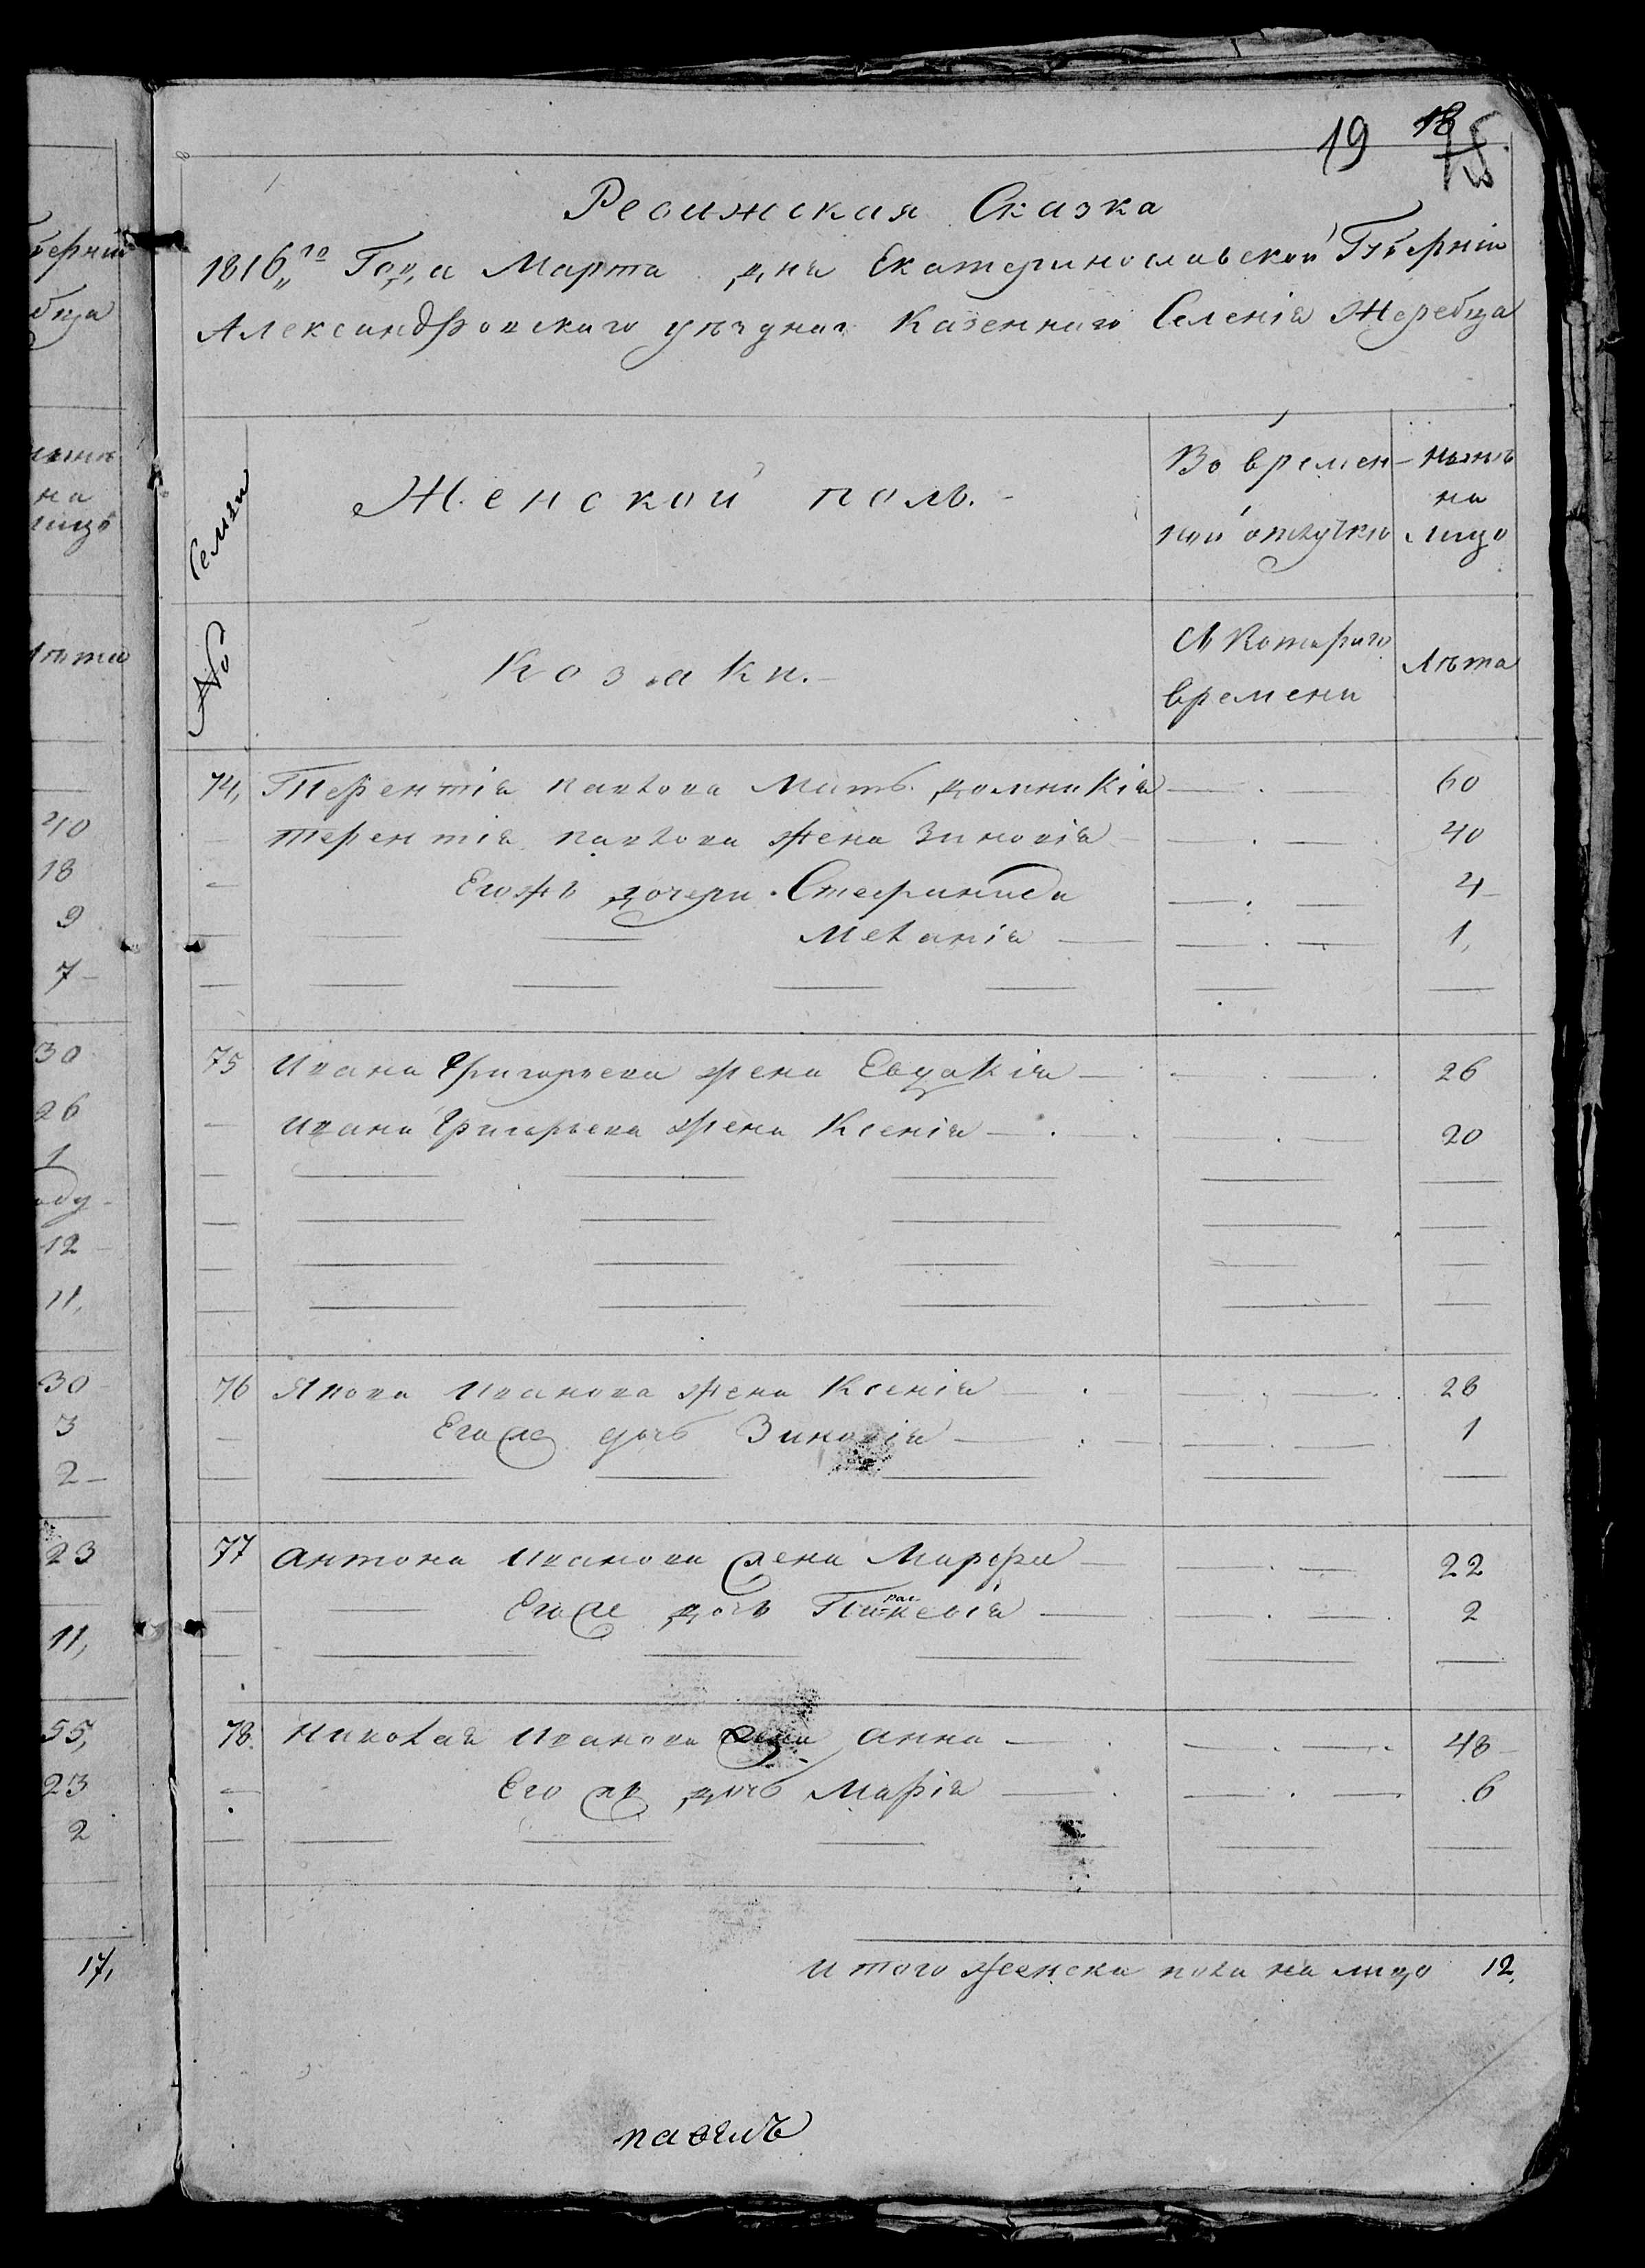 19 18
Ревижская Сказка
1816„го Года Марта дня Екатеринославской Губерніи
Александровскаго уезднаго Казеннаго Селенія Жеребца
№ Семьи
Женской полъ.
Во времен-
ной отлучки
ныне
на
лицо
Козаки.
Съ Котораго
времени
Лета
74, Терентія Павлова Мать Домникія 60
Терентія Павлова жена Зиновія 40
Егожъ дочери Стефанида 4
Меланія 1,
75 Ивана Григорьева жена Евдакія 26
Ивана Григорьева жена Ксенія 20
76 Якова Иванова жена Ксенія 28
Егоже дочь Зиновія 1
77 Антона Иванова жена Марфа 22
Егоже дочь 2
78. Николая Иванова жена Анна 48
Его же дочь Марія 6
Итого женска пола на лицо 12,
берніи
бца
на
лицо
лета
40
18
9
7
30
26
1
12
11,
30
3
2
23
11,
55,
23
2
17,